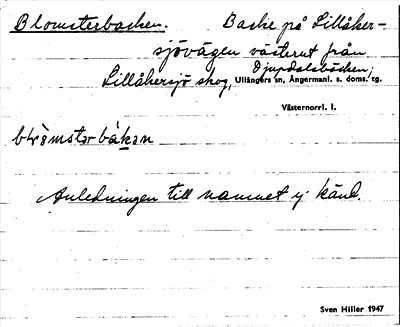 Blomsterbacken. Backe på Lillåker-
sjövägen västerut från
Djupdalsbäcken;
Lillåkersjö skog, Ullångers sn, Ångermanl. s. doms. tg.
Västernorrl. l.
blòmstərbákən
Anledningen till namnet ej känd.
Sven Hiller 1947